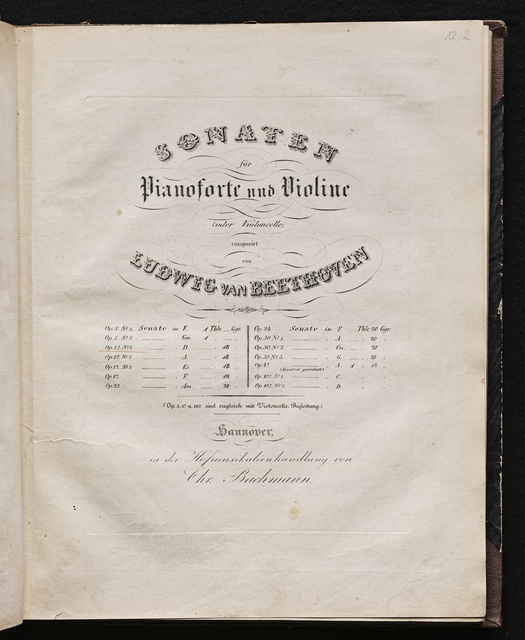 12,2
SONATEN
für
Pianoforte und Violine
(oder Violoncelle)
componirt
von
LUDWIG VAN BEETHOVEN
Op. 5. No. 1. Sonate in F. 1 Thlr. Ggr.
Op. 5. No. 2. Gm. 1
Op. 12. No. 1. D. 18
Op. 12. No. 2. A. 18
Op. 12. No. 3. Es 18
Op. 17. F. 18
Op. 23. Am. 20
Op. 24. Sonate in F. Thlr. 20 Ggr.
Op. 30. No. 1. A. 20
Op. 30. No. 2. Cm. 20
Op. 30. No. 3. G. 20
Op. 47. A. 1 12
Op. 102. No. 1. C.
Op. 102. No. 2.
(Op. 5, 17 u. 102 sind zugleich mit Violoncelle Begleitung)
Hannover,
in der Hofmusikalienhandlung von
Chr. Bachmann